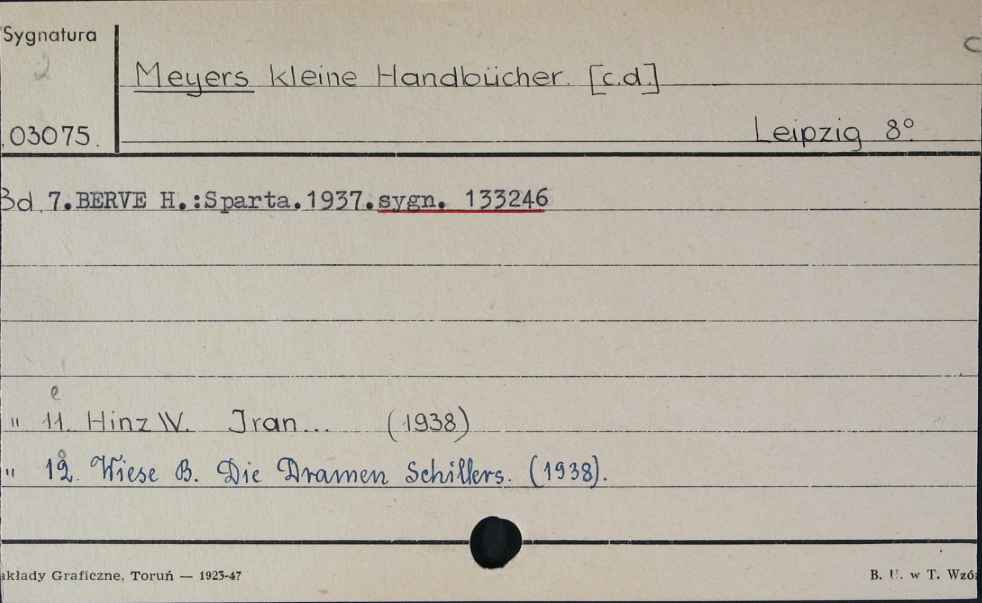 Sygnatura
2
03075.
Meyers kleine Handbücher. [c.d.]
Leipzig 8°
Bd. 7.BERVE H.:Sparta.1937.sygn. 133246
e
" 11. Hinz W. Iran... (1938)
" 12. Wiese B. Die Dramen Schillers. (1938).
akłady Graficzne, Toruń — 1923-47
B. U. w T. Wzór